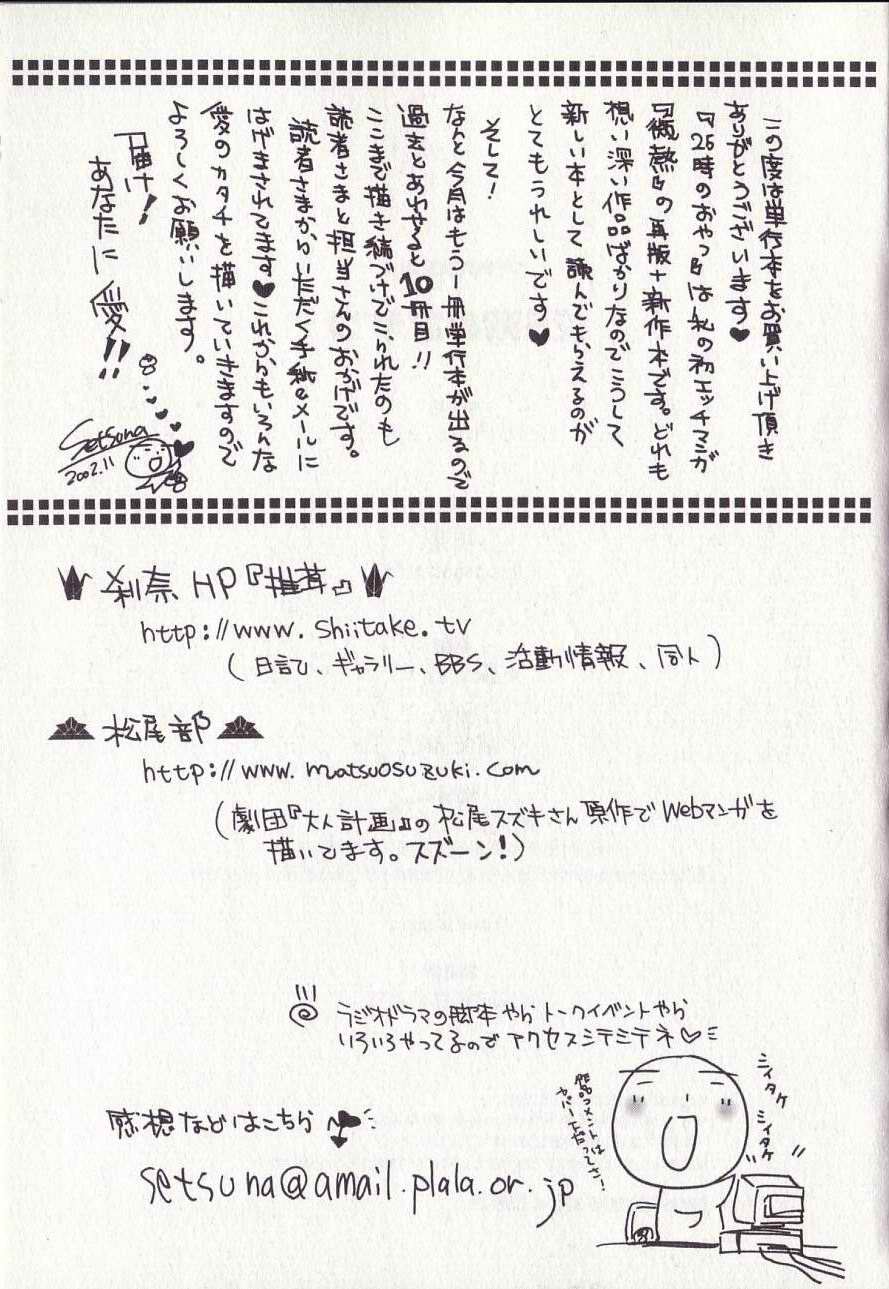 この度は単行本をお買い上げ頂き
ありがとうございます♥
『25時のおやつ』は私の初エッチマンガ
『微熱』の再版+新作本です。どれも
想い深い作品ばかりなのでこうして
新しい本として読んでもらえるのが
とてもうれしいです♥
そして!
なんと今月はもう1冊単行本が出るので
過去とあわせると10冊目!!
ここまで描き続けてこられたのも
読者さまと担当さんのおかげです。
読者さまからいただく手紙やメールに
はげまされてます♥これからもいろんな
愛のカタチを描いていきますので
よろしくお願いします。
届け!
あなたに愛!!
Setsuna
2002.11
刹奈HP『椎茸』
http://www.shiitake.tv
(日記、ギャラリー、BBS、活動情報、同人)
松尾部
http://www.matsuosuzuki.com
(劇団『大人計画』の松尾スズキさん原作でWebマンガを
描いてます。スズーン!)
ラジオドラマの脚本やらトークイベントやら
いろいろやってるのでアクセスシテミテネ♡
シイタケ
シイタケ
感想などはこちら
setsuna@amail.plala.or.jp